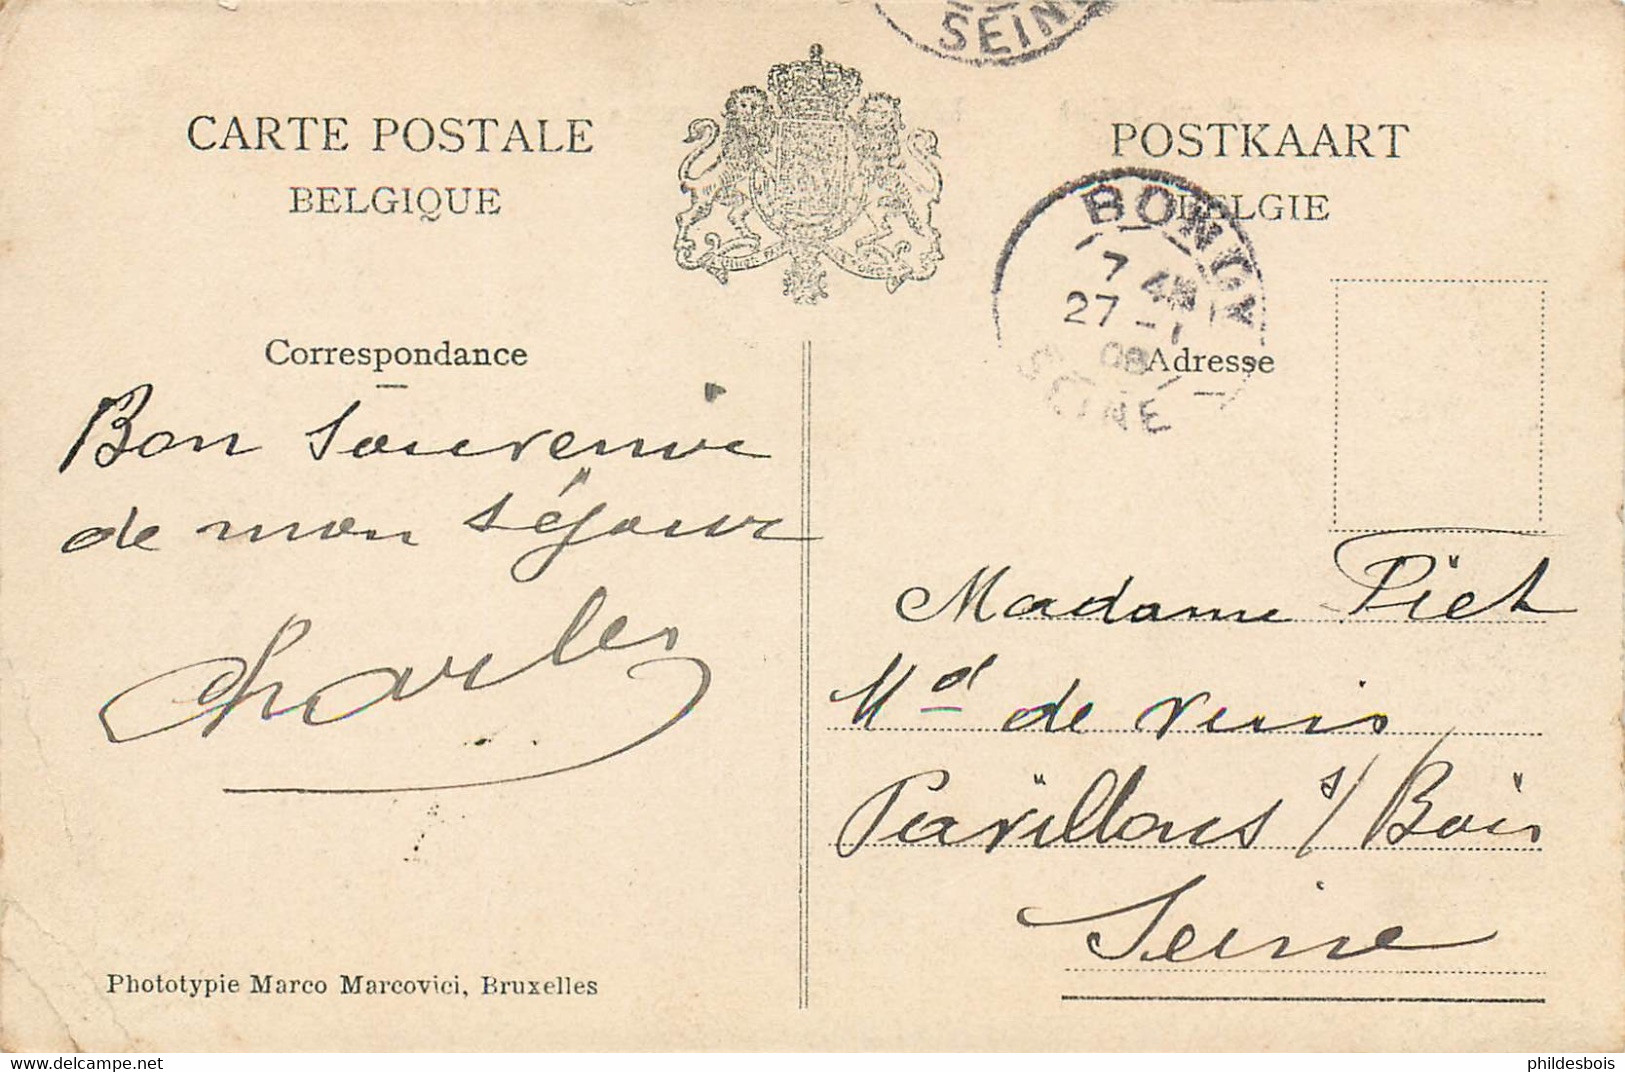 SEINE
CARTE POSTALE
BELGIQUE
POSTKAART
BELGIE
BONDY
7
27 -
08
SEINE
Correspondance
Adresse
Bon souvenir
de mon séjour
Charles
Madame Piet
Md de vins
Pavillons s/ Bois
Seine
Phototypie Marco Marcovici, Bruxelles
www.delcampe.net
phildesbois